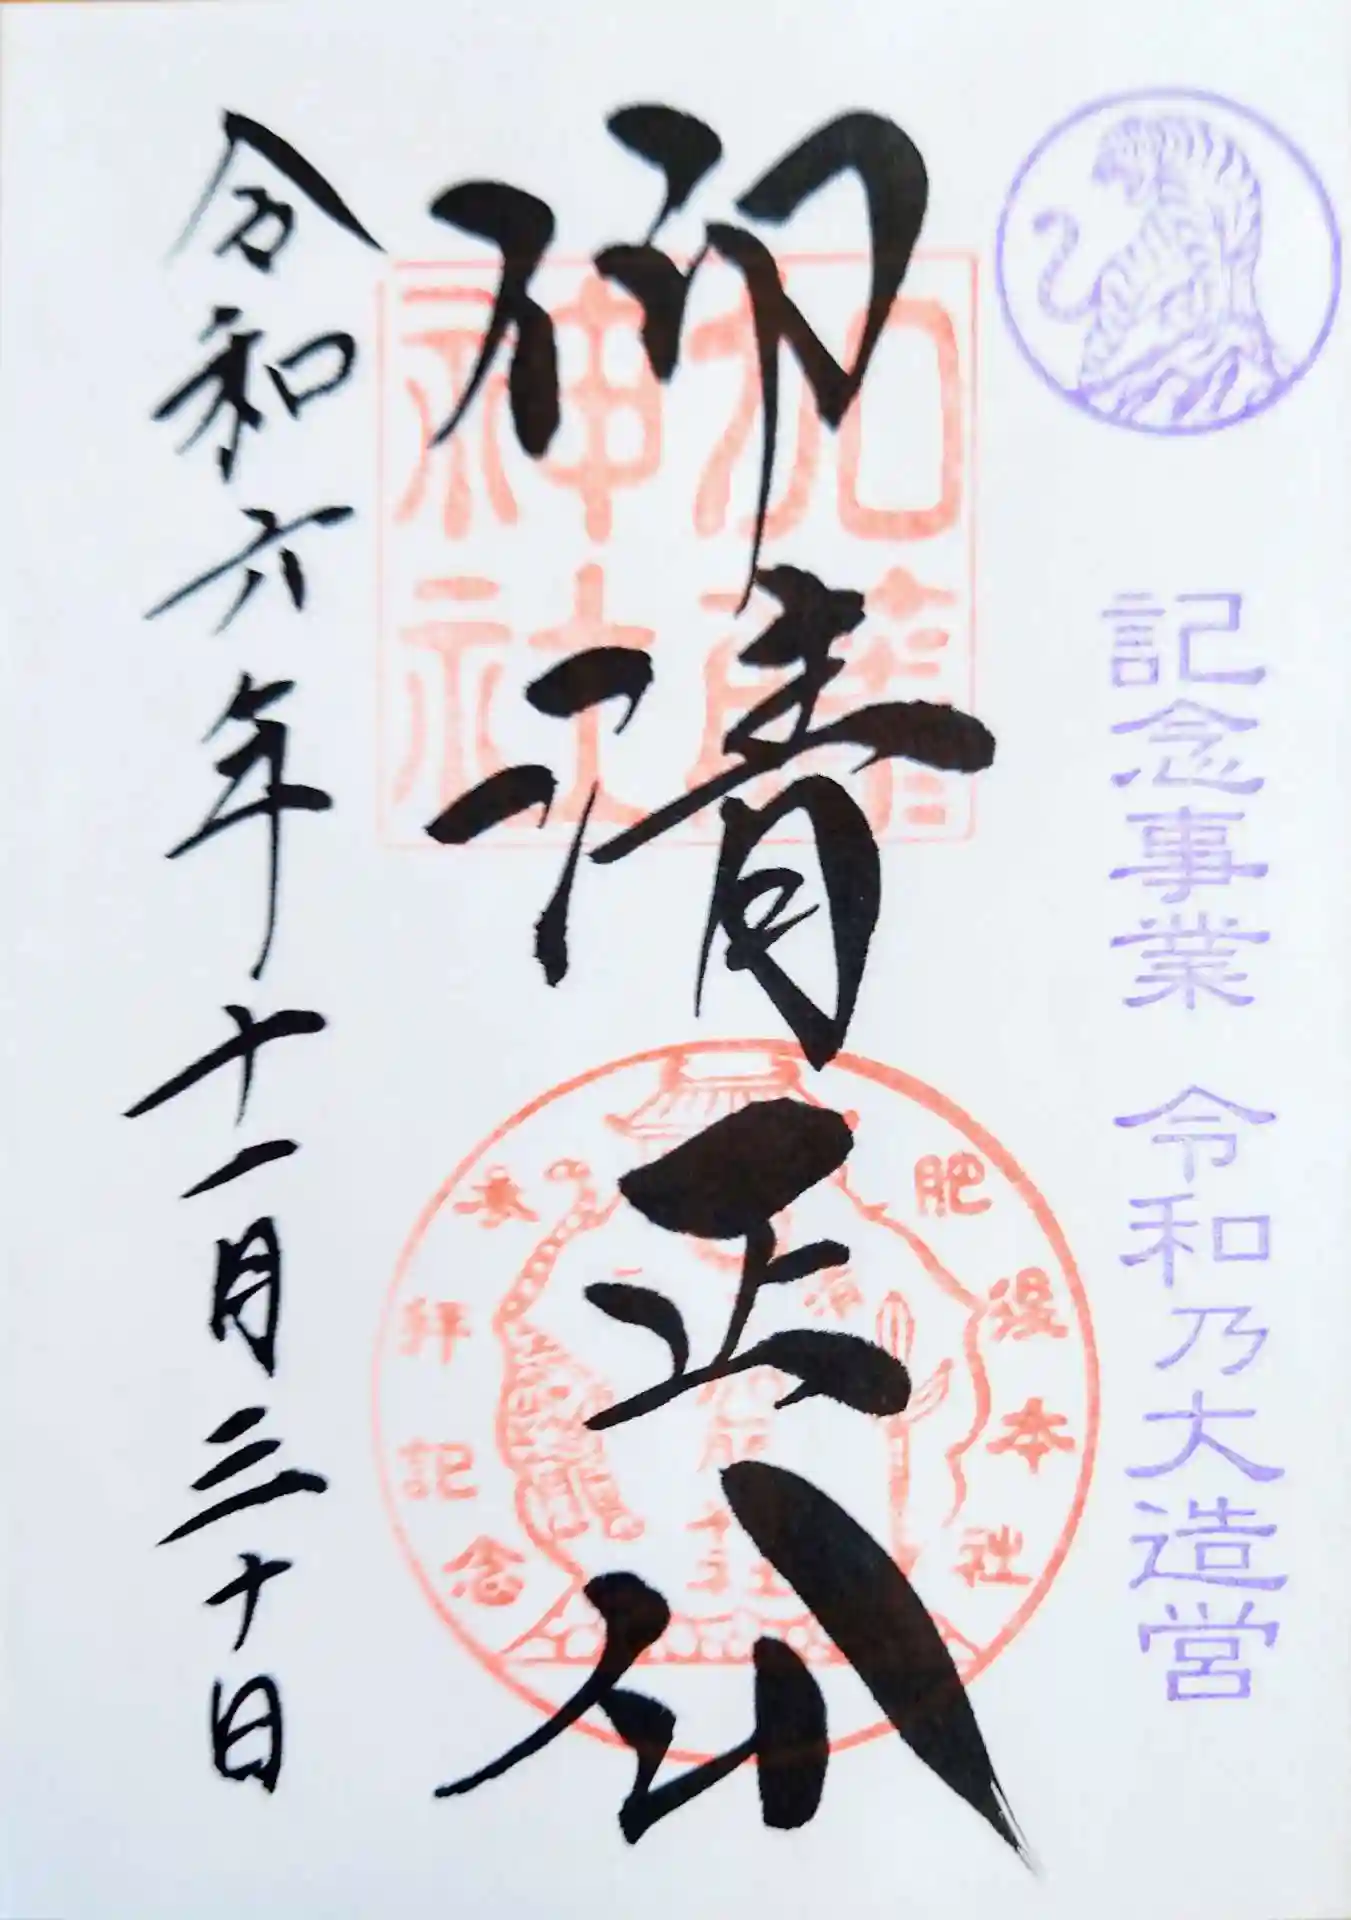 記念事業 令和乃大造営
御清正公
加藤
神社
肥後本社
参拝記念
令和六年十一月三十日